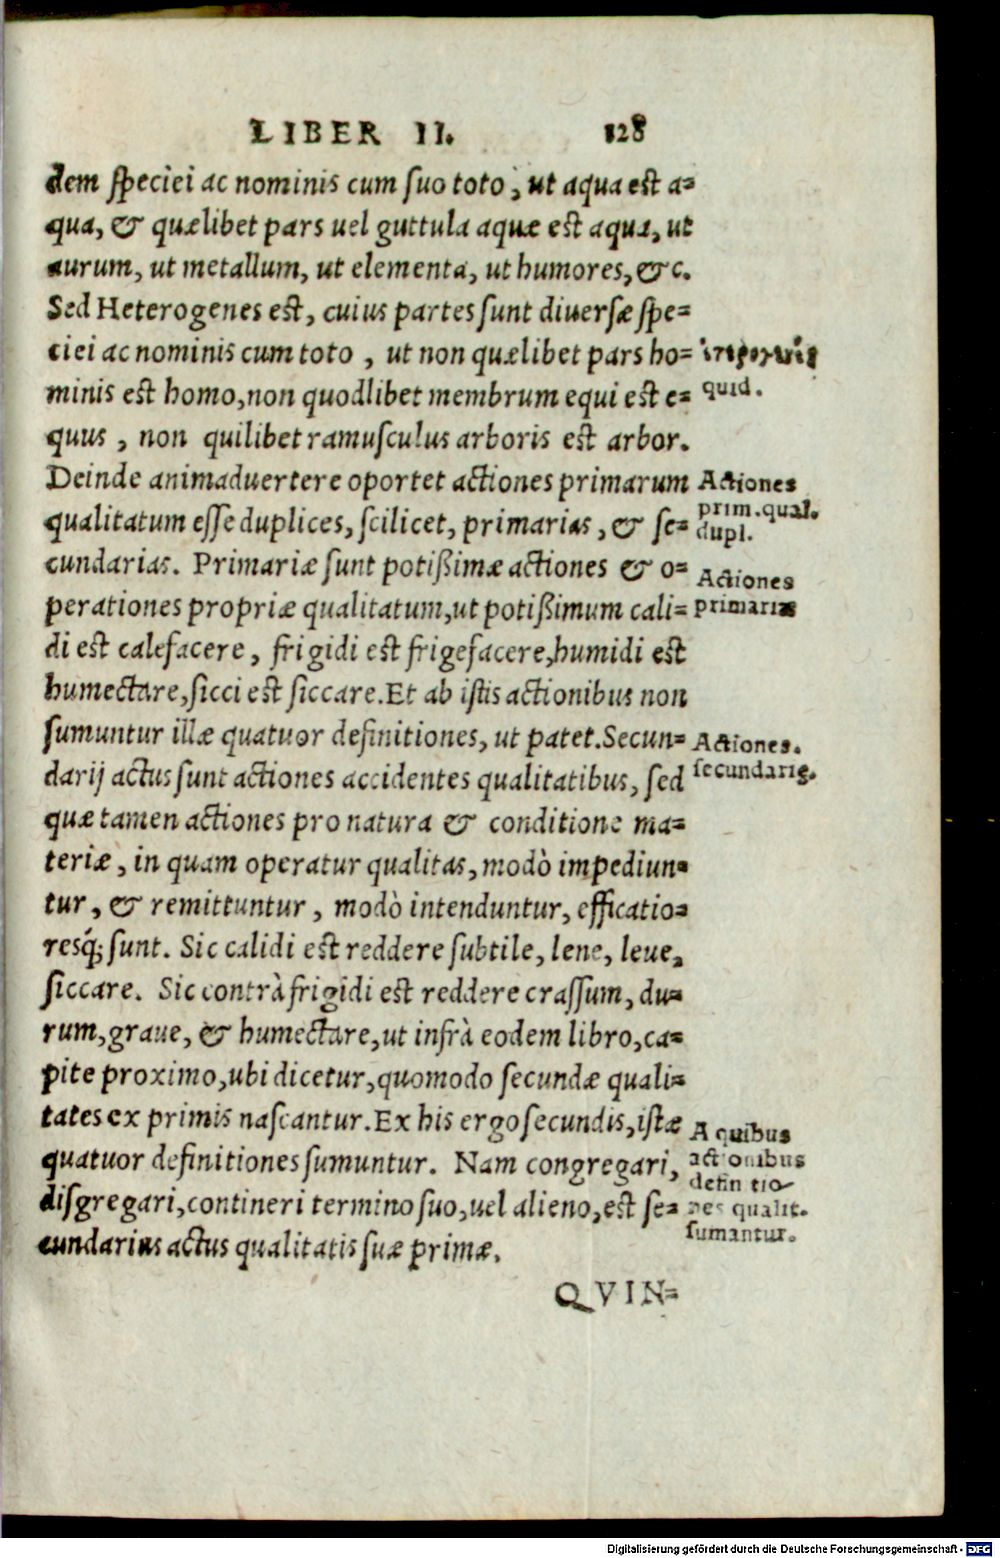 LIBER II. 128
dem speciei ac nominis cum suo toto, ut aqua est a-
qua, & quælibet pars uel guttula aquæ est aqua, ut
aurum, ut metallum, ut elementa, ut humores, &c.
Sed Heterogenes est, cuius partes sunt diuersæ spe-
ciei ac nominis cum toto, ut non quælibet pars ho-
minis est homo, non quodlibet membrum equi est e-
quid.
quus, non quilibet ramusculus arboris est arbor.
Deinde animaduertere oportet actiones primarum
Actiones
prim. qual.
dupl.
qualitatum esse duplices, scilicet, primarias, & se-
cundarias. Primariæ sunt potißimæ actiones & o-
Actiones
primariæ
perationes propriæ qualitatum, ut potißimum cali-
di est calefacere, frigidi est frigefacere, humidi est
humectare, sicci est siccare. Et ab istis actionibus non
sumuntur illæ quatuor definitiones, ut patet. Secun-
Actiones.
secundarię.
darij actus sunt actiones accidentes qualitatibus, sed
quæ tamen actiones pro natura & conditione ma-
teriæ, in quam operatur qualitas, modò impediun-
tur, & remittuntur, modò intenduntur, efficatio-
resq́; sunt. Sic calidi est reddere subtile, lene, leue,
siccare. Sic contrà frigidi est reddere crassum, du-
rum, graue, & humectare, ut infrà eodem libro, ca-
pite proximo, ubi dicetur, quomodo secundæ quali-
tates ex primis nascantur. Ex his ergo secundis, istæ
A quibus
actionibus
definitio-
nes qualit.
sumantur.
quatuor definitiones sumuntur. Nam congregari,
disgregari, contineri termino suo, uel alieno, est se-
cundarius actus qualitatis suæ primæ.
QVIN-
Digitalisierung gefördert durch die Deutsche Forschungsgemeinschaft - DFG